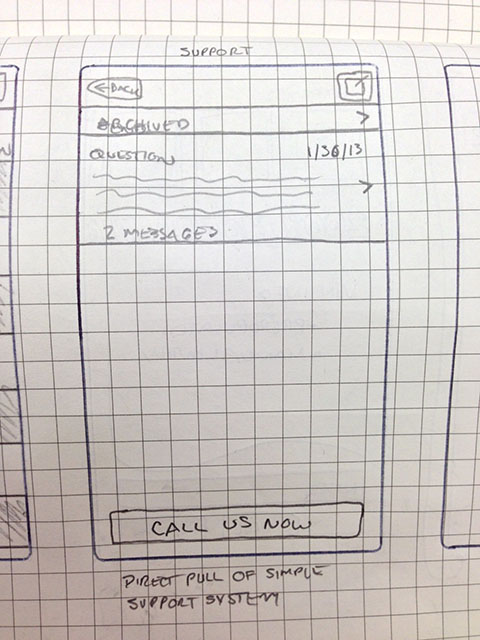 SUPPORT
BACK
ARCHIVED >
QUESTION 1/30/13
>
2 MESSAGES
CALL US NOW
DIRECT PULL OF SIMPLE
SUPPORT SYSTEM